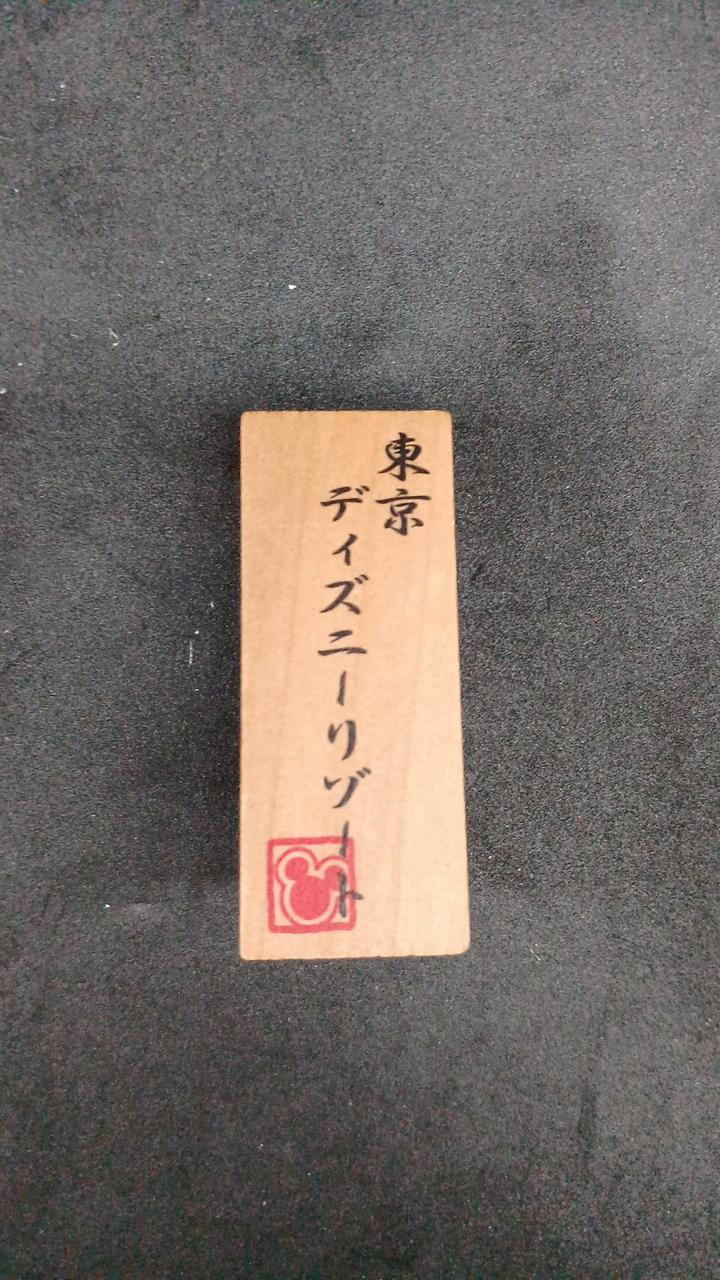 東京
ディズニーリゾート